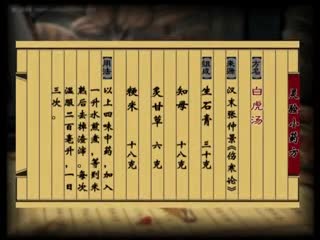 灵验小药方
方名
白虎汤
来源
汉末张仲景《伤寒论》
组成
生石膏 三十克
知母 十八克
炙甘草 六克
粳米 十八克
用法
以上四味中药，加入
一升水煎煮，等到米
熟后去掉渣滓。每次
温服二百毫升，一日
三次。